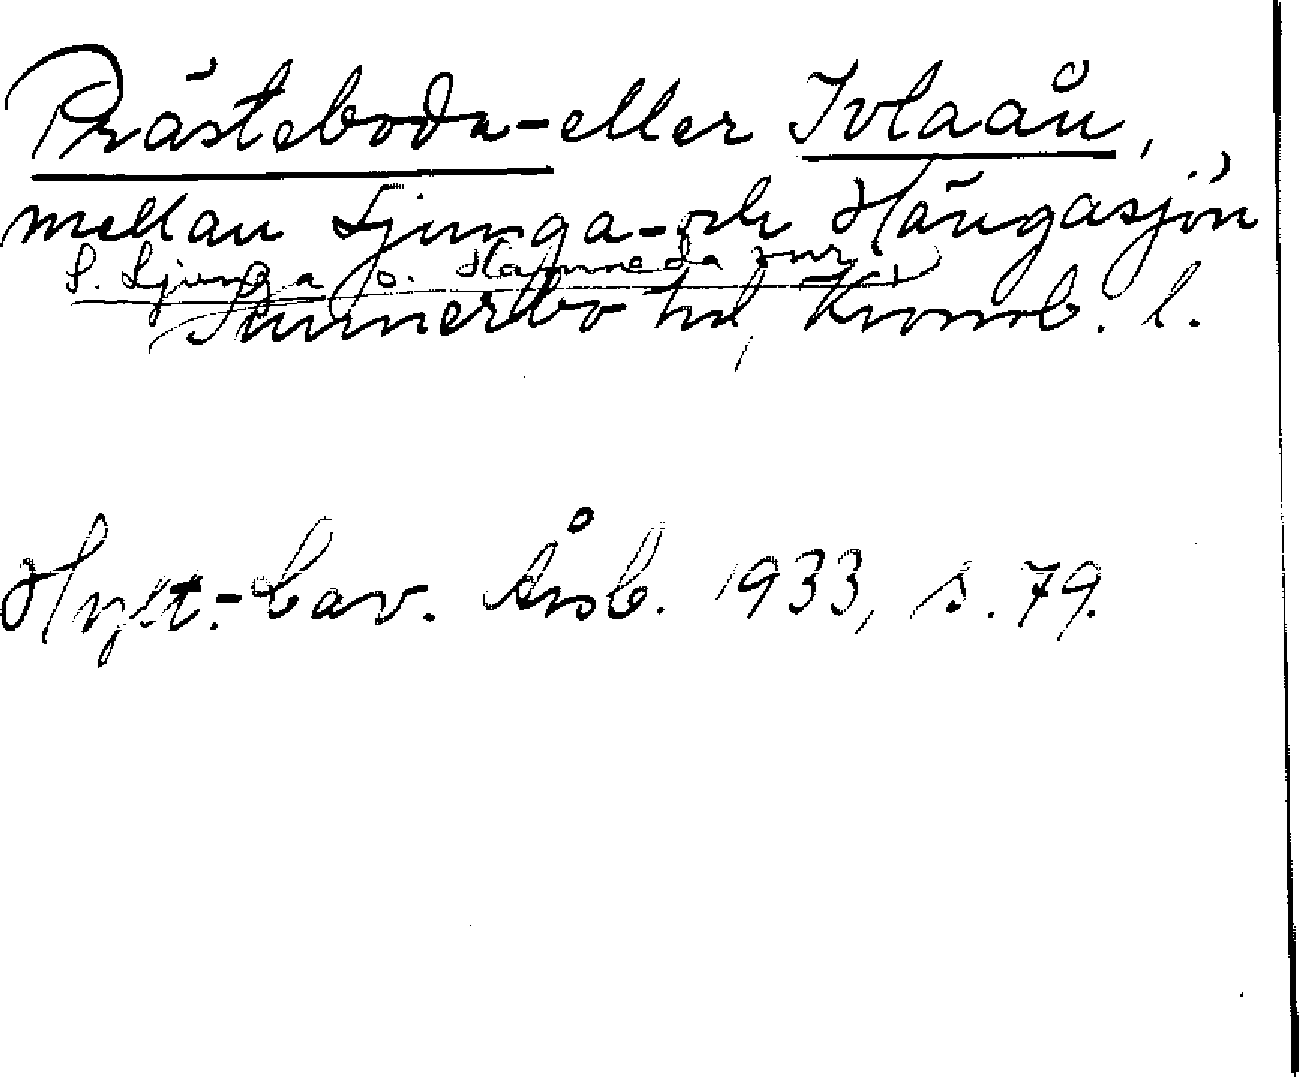 Prästeboda- eller Ivlaån,
mellan Ljunga- och Hängasjön
S. Ljunga o. Hamneda snr
Sunnerbo hd, Kronob. l.
Hylt.-Cav. Årsb. 1933, s. 79.